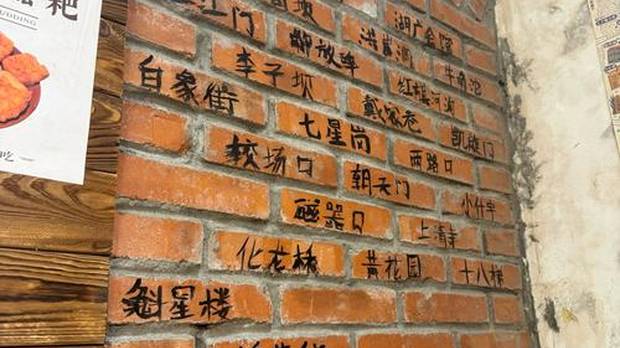 粑
UDDING
湖广会馆
洪崖洞
牛角沱
李子坝
白象街
红旗河沟
戴家巷
七星岗
凯旋门
较场口
两路口
朝天门
小什字
磁器口
上清寺
化龙桥
黄花园
十八梯
魁星楼